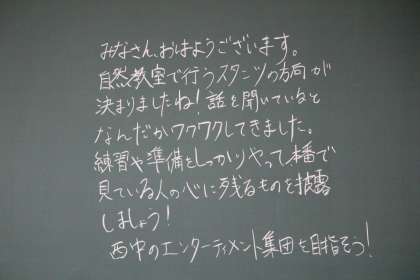 みなさん、おはようございます。
自然教室で行うスタンツの方向が
決まりましたね！話を聞いていると
なんだかワクワクしてきました。
練習や準備をしっかりやって本番で
見ている人の心に残るものを披露
しましょう！
西中のエンターティメント集団を目指そう！